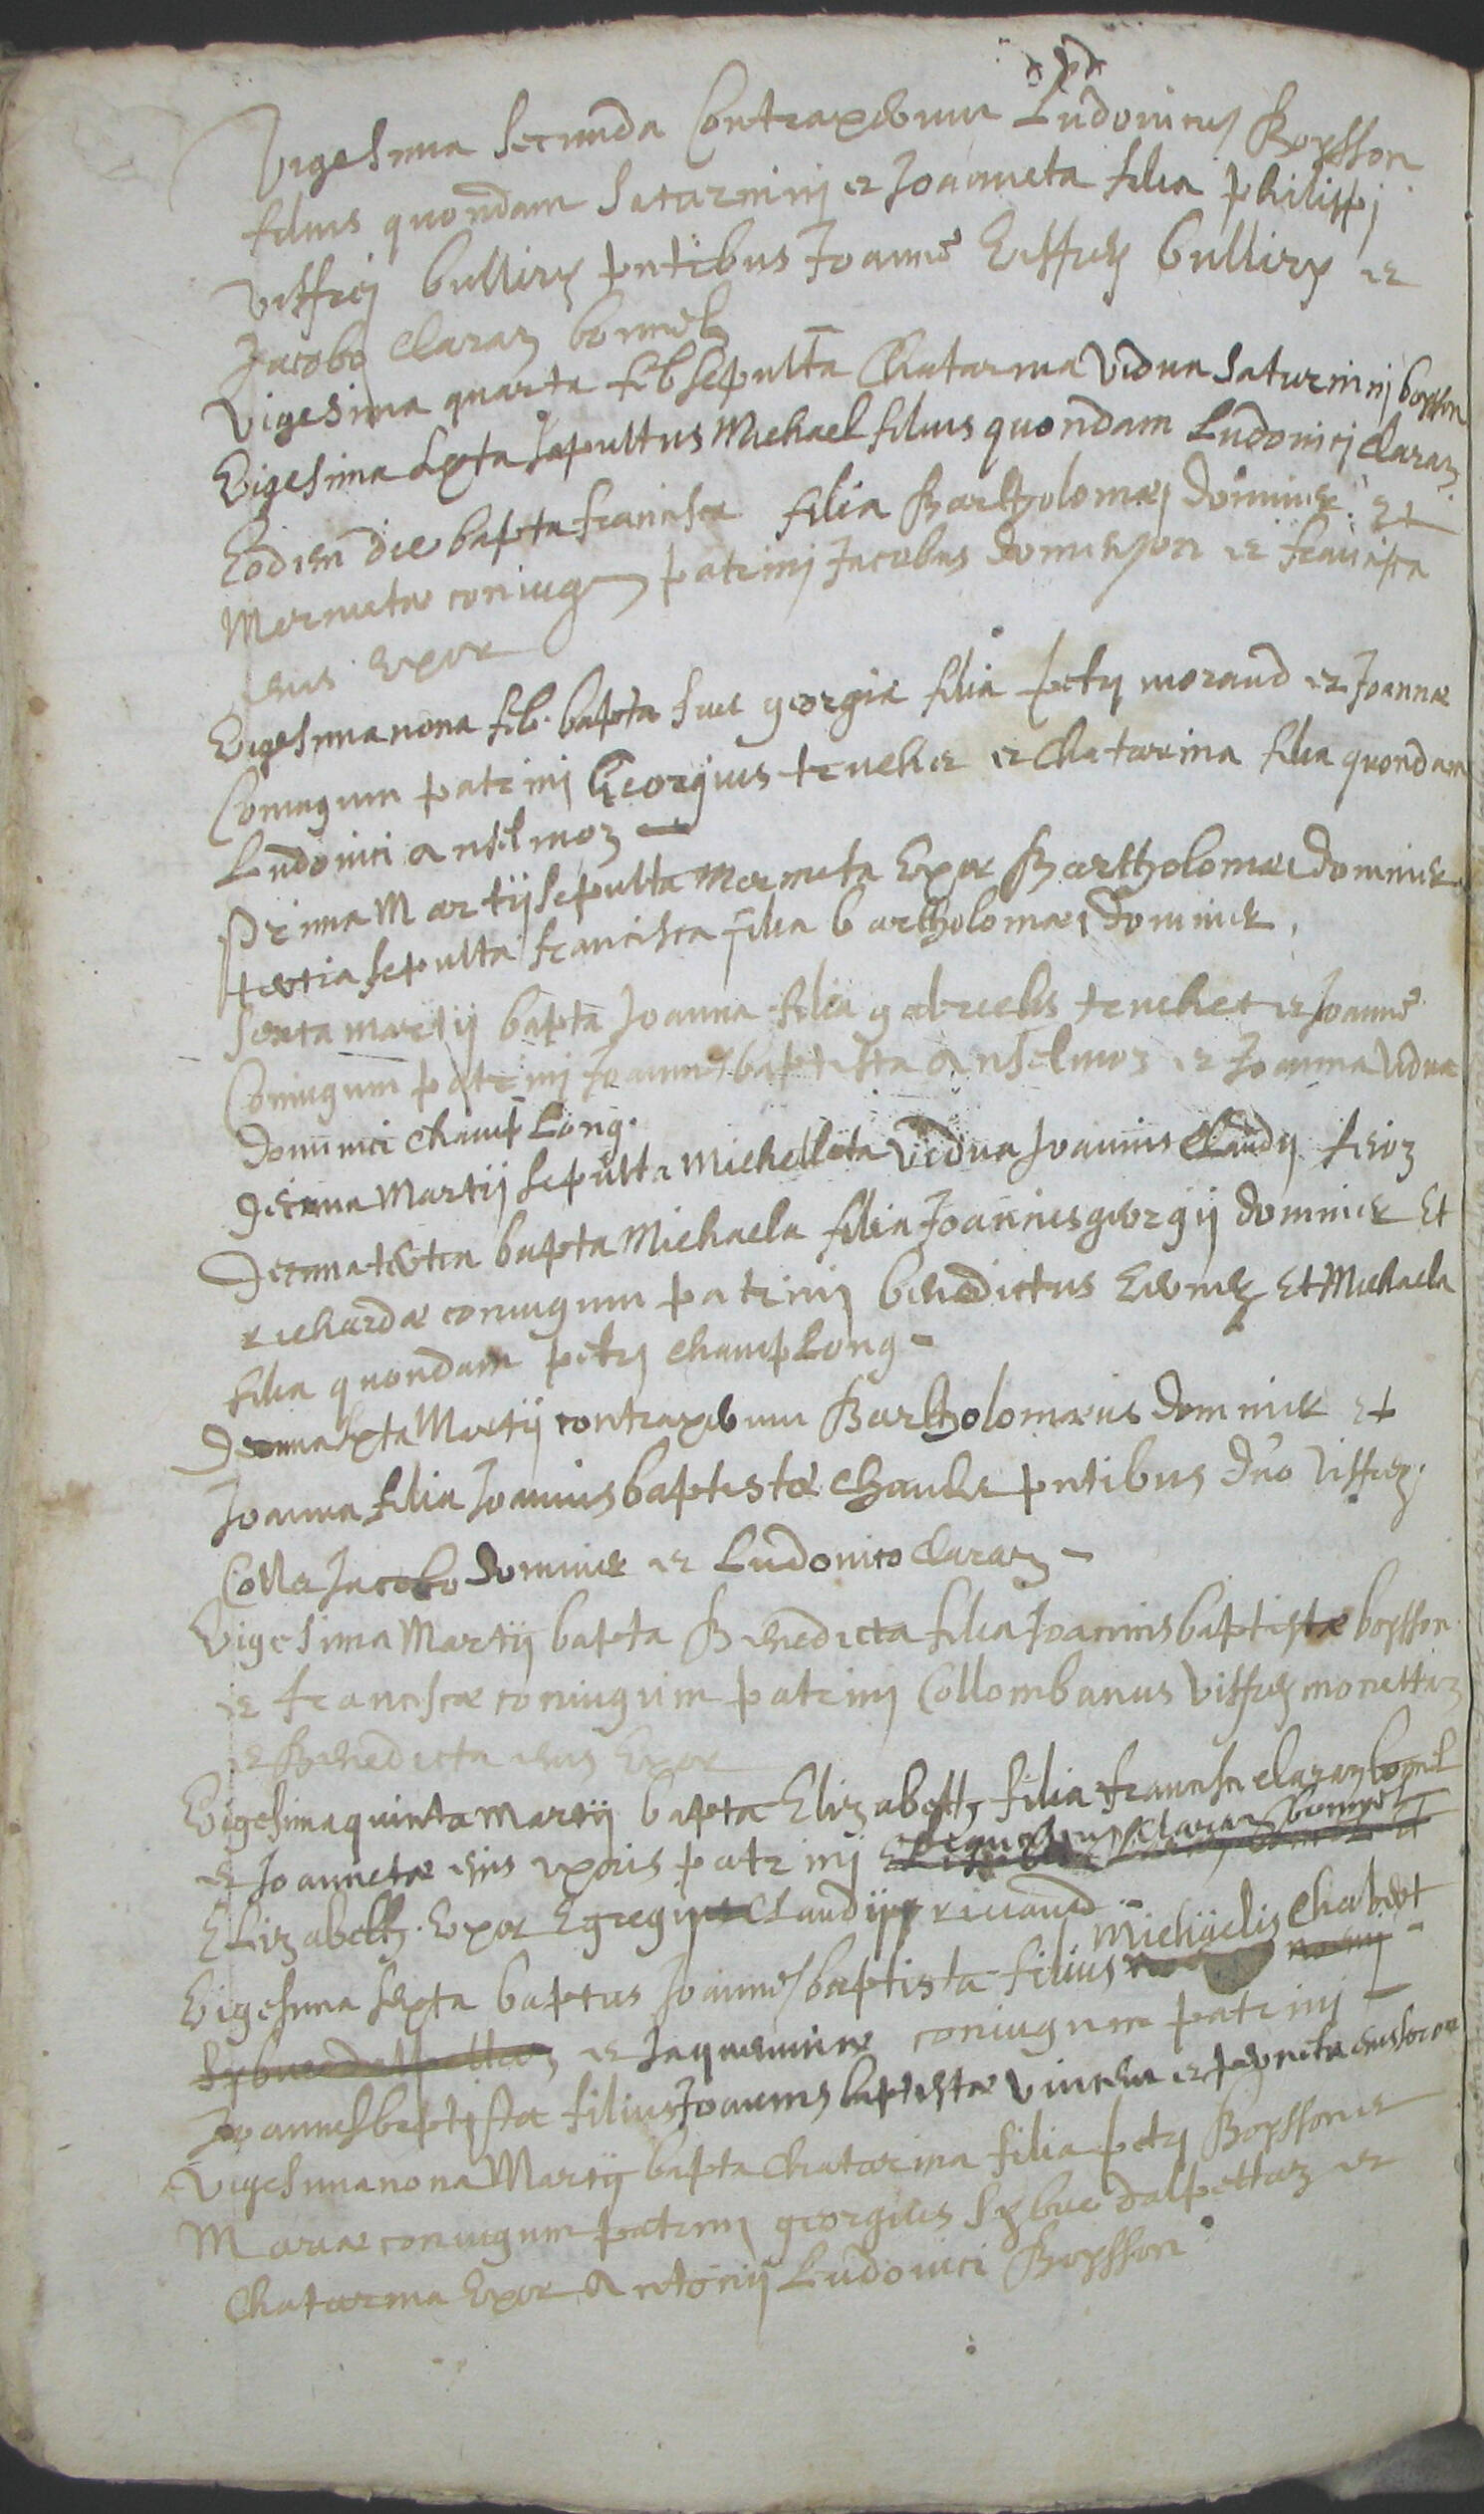 Vigesima secunda Contraxerunt Ludovicus Boysson
filius quondam Saturninj et Joanneta filia philippj
Viffrey bullierz pntibus Joanne Viffrey bullierz et
Jacobo Claraz bornel
Vigesima quarta feb sepulta Chatarina Vidua Saturninj boysson
Vigesima sexta sepultus Michael filius quondam Ludovicj Claraz
Eodem die bapta francisca filia Bartholomæj dominiet et
Mermetæ coniugum patrinj Jacobus et francisca
eius Uxor
Vigesima nona feb. bapta fuit georgia filia petrj moraud et Joannæ
Coniugum patrinj Georgius truchet et Chatarina filia quondam
Ludovici anselmoz
Prima Martij sepulta Mermeta Uxor Bartholomæi dominiet
tertia sepulta francisca filia bartholomæi dominiet.
Sexta martij bapta Joanna filia gabrielis truchet et Joannæ
Coniugum patrinj Joannes baptista anselmoz et Joanna Vidua
dominici champLong.
Decima Martij sepulta Michelleta Vidua Joannis Claudij
Decima tertia bapta Michaela filia Joannis georgij dominiet Et
richardæ coniugum patrinj benedictus Et Michaela
filia quondam petrj champLong-
Decima sexta Martij contraxerunt Bartholomæus dominiet et
Joanna filia Joannis baptistæ pntibus dno Viffrey.
Collet Jacobo dominiet et Ludovico Claraz-
Vigesima Martij bapta Benedicta filia Joannis baptistæ boysson
et franciscæ coniugum patrinj Collombanus Viffrey monettaz
et Benedicta eius Uxor
Vigesima quinta martij bapta Elizabeth filia francisci claraz bornel
et Joannetæ eius uxoris patrinj Claraz bornel
Elizabeth. Uxor Egregij Claudij rivaud-
Michaelis Chabert
Vigesima sexta baptus Joannes baptista filius
et Jaqueminæ coniugum patrinj-
Joannes baptista filius Joannis baptistæ Vincent et eius soror
Vigesima nona Martij bapta Chatarina filia petrj Boysson et
Mariæ coniugum patrinj georgius Sybue dalpettaz et
Chatarina Uxor Ludovici Boysson.